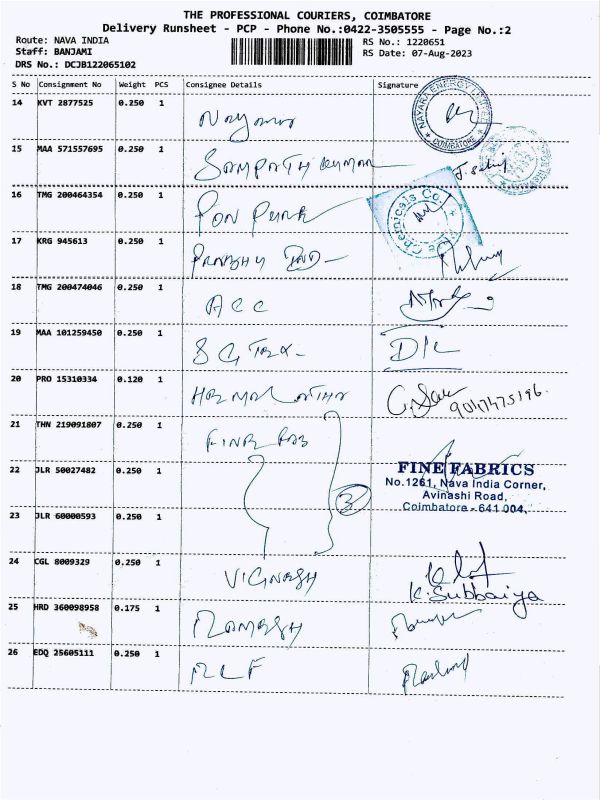 THE PROFESSIONAL COURIERS, COIMBATORE
Delivery Runsheet - PCP - Phone No.:0422-3505555 - Page No.:2
Route: NAVA INDIA
Staff: BANJAMI
DRS No.: DCJB122065102
RS No.: 1220651
RS Date: 07-Aug-2023
S No Consignment No Weight PCS Consignee Details Signature
14 KVT 2877525 0.250 1 Nayara
NAYARA ENERGY LIMITED
COIMBATORE
15 MAA 571557695 0.250 1 SAMPATH KUMAR
16 TMG 200464354 0.250 1 PON PURE
Chemicals Co.
17 KRG 945613 0.250 1 PRABHU IND
18 TMG 200474046 0.250 1 ACC
19 MAA 101259450 0.250 1 D/L
20 PRO 15310334 0.120 1
9047475196.
21 THN 219091807 0.250 1 FINE FAB
22 JLR 50027482 0.250 1
3
FINE FABRICS
No.1261, Nava India Corner,
Avinashi Road,
Coimbatore - 641 004.
23 JLR 60000593 0.250 1
24 CGL 8009329 0.250 1 VIGNESH
K. Subbaiya
25 HRD 360098958 0.175 1 RAMESH
26 EDQ 25605111 0.250 1 MLF